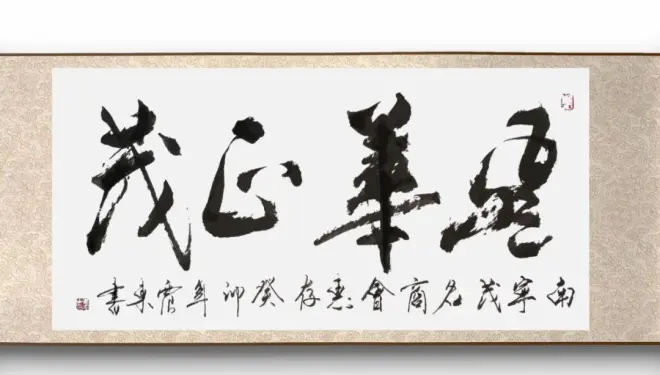 風華正茂
南寧茂名商會惠存癸卯年震東書